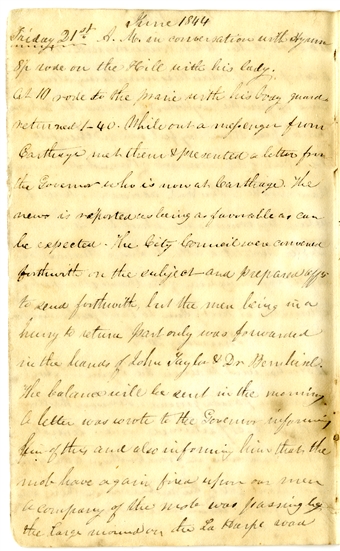 June 1844
Friday 21st A. M. in conversation with Hyrum
& rode on the Hill with his lady.
At 10 rode to the prairie with his body guard
returned 1-40. While out a messenger from
Carthage met them & presented a letter from
the Governor who is now at Carthage. The
news is reported as being as favorable as can
be expected. The City Council were convened
forthwith on the subject and prepared
to send forthwith, but the men being in a
hurry to return part only was forwarded
in the hands of John Taylor & Dr Bernhisel.
The balance will be sent in the morning
A letter was wrote to the Governor informing
him of this and also informing him that the
mob have again fired upon our men
a company of the mob was passing by
the large mound on the La Harpe road